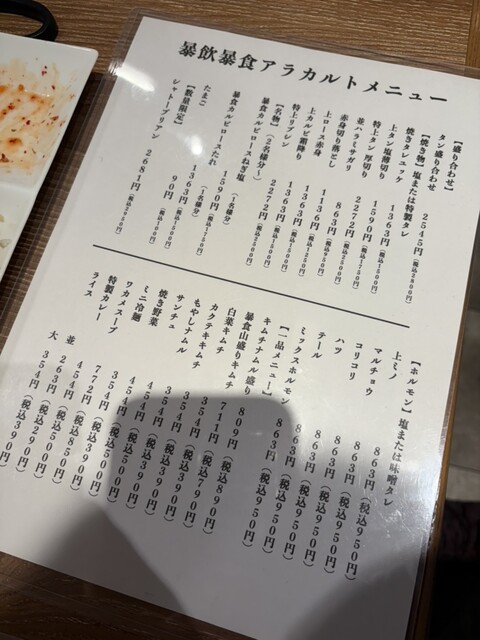 暴飲暴食アラカルトメニュー
【盛り合わせ】
タン盛り合わせ 2545円(税込2800円)
【焼き物】塩または特製タレ
焼きタレユッケ 1363円(税込1500円)
上タン塩薄切り 1590円(税込1750円)
特上タン厚切り 2272円(税込2500円)
並ハラミサガリ 863円(税込950円)
赤身切り落とし 1136円(税込1250円)
上ロース赤身 1363円(税込1500円)
上カルビ霜降り 1363円(税込1500円)
特上リブシン 2272円(税込2500円)
【名物】(2名様分～)
暴食カルビロースねぎ塩 1590円(税込1750円)(1名様分)
暴食カルビロースたれ 1363円(税込1500円)(1名様分)
たまご 90円(税込100円)
【数量限定】
シャトーブリアン 2681円(税込2950円)
【ホルモン】塩または味噌タレ
上ミノ 863円(税込950円)
マルチョウ 863円(税込950円)
コリコリ 863円(税込950円)
ハツ 863円(税込950円)
テール 863円(税込950円)
ミックスホルモン 863円(税込950円)
【一品メニュー】
キムチナムル盛り 863円(税込950円)
暴食山盛りキムチ 809円(税込890円)
白菜キムチ 711円(税込790円)
カクテキキムチ 354円(税込390円)
もやしナムル 354円(税込390円)
サンチュ 354円(税込390円)
焼き野菜 454円(税込500円)
ミニ冷麺 454円(税込500円)
ワカメスープ 354円(税込390円)
特製カレー 772円(税込850円)
ライス 並 263円(税込290円)
大 354円(税込390円)